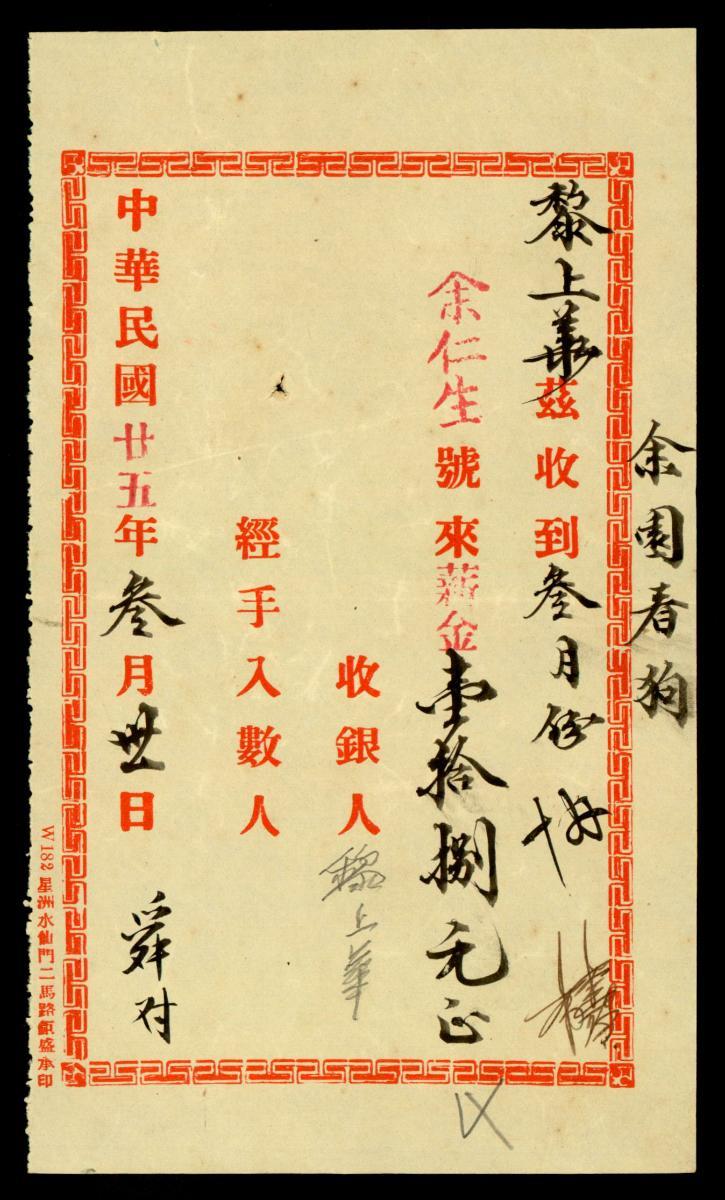 余園春狗
黎上華茲收到叁月份
余仁生號來薪金壹拾捌元正
收銀人黎上華
經手入數人
中華民國廿五年叁月卅一日 舜付
W182 星洲水仙門二馬路領盛承印